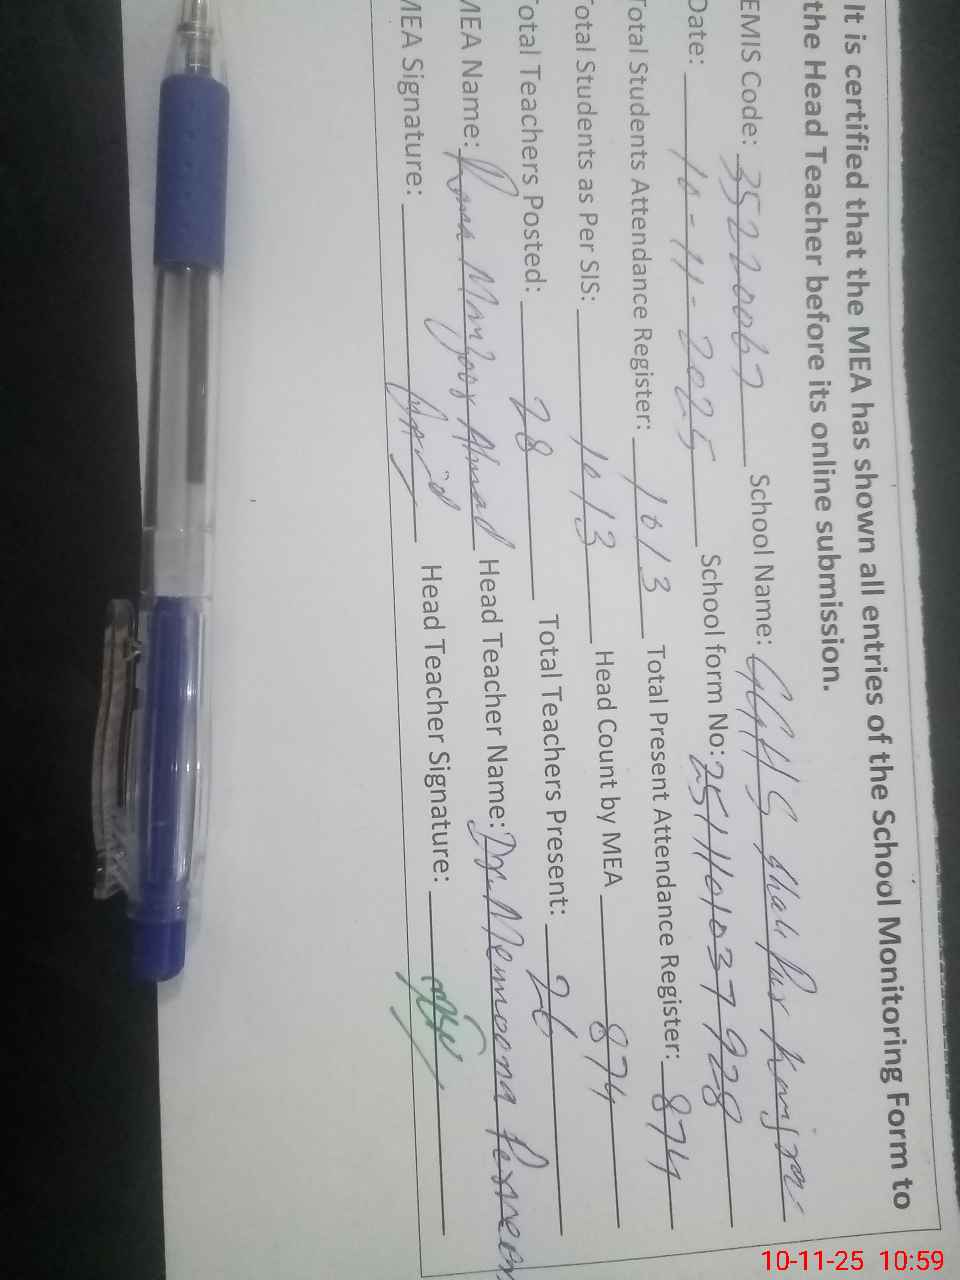 It is certified that the MEA has shown all entries of the School Monitoring Form to
the Head Teacher before its online submission.
EMIS Code: 35220067 School Name: GGHS Shah Pur Kanjra
Date: 10-11-2025 School form No: 251110103 7928
Total Students Attendance Register: 1013 Total Present Attendance Register: 874
Total Students as Per SIS: 1013 Head Count by MEA 874
Total Teachers Posted: 28 Total Teachers Present: 26
MEA Name: Rana Manzoor Ahmad Head Teacher Name: Dr. Memoona Perveen
MEA Signature: Head Teacher Signature:
10-11-25 10:59